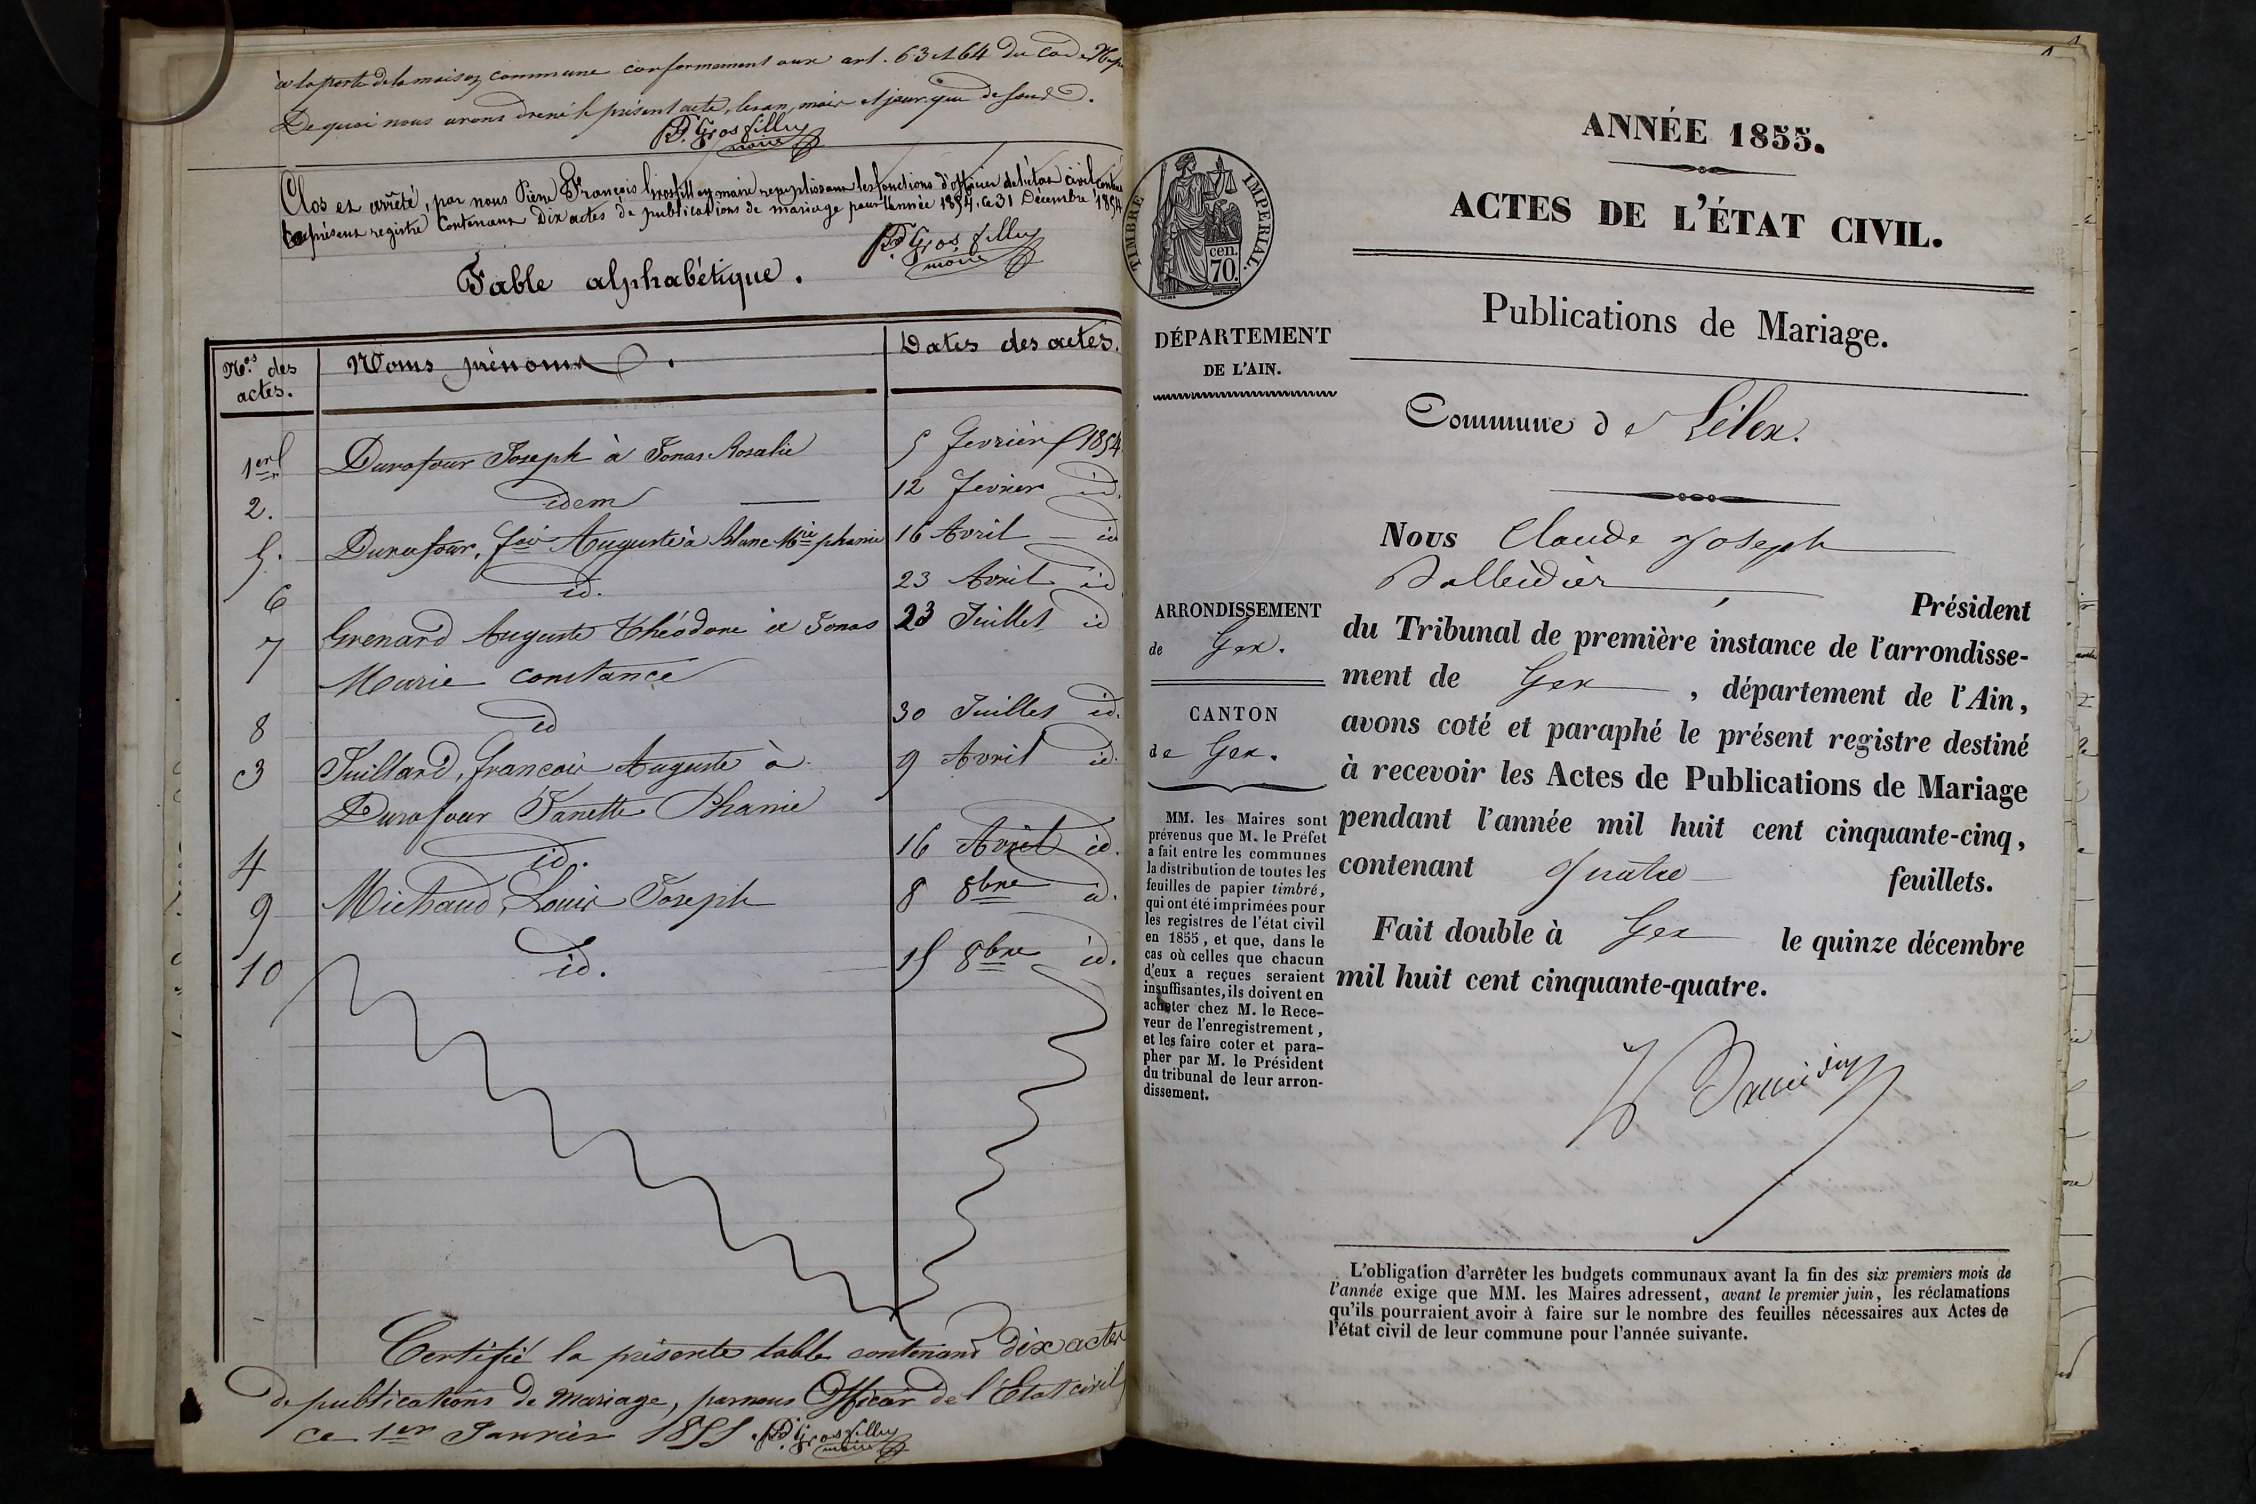 à la porte de la maison commune conformement aux art. 63 et 64 du Code Nap
De quoi nous avons dressé le présent acte, les an, mois et jour que dessus.
P. F. Grosfilley
maire
Clos et arrêté, par nous Pierre François Grosfilley maire remplissant les fonctions d'officier de l'état civil
le présent registre Contenant Dix actes de publications de mariage pour l'année 1854. Ce 31 Décembre 1854
P. F. Grosfilley
maire
Table alphabétique.
Nos. des actes.
Noms prénoms.
Dates des actes.
1er Durafour Joseph à Jonas Rosalie 5 fevrier 1854
2. idem 12 fevrier id.
5. Durafour, fois Auguste à Blanc Mie phanie 16 Avril id
6 id. 23 Avril id
7 Grenard Auguste Théodore à Jonas 23 Juillet id
Marie Constance
8 id 30 Juillet id.
3 Juilland, francois Auguste à 9 Avril id.
Durafour Janette Phanie
4 id. 16 Avril id.
9 Michaud, Louis Joseph 8 8bre id.
10 id. 15 8bre id.
Certifié la présente table contenant dix actes
de publications de mariage, par nous Officier de l'Etat civil
ce 1er Janvier 1855. P. F. Grosfilley
maire
1
ANNÉE 1855.
ACTES DE L'ÉTAT CIVIL.
Publications de Mariage.
TIMBRE IMPERIAL.
cen.
70.
DÉPARTEMENT
DE L'AIN.
Commune de Lélex.
ARRONDISSEMENT
de Gex.
CANTON
de Gex.
MM. les Maires sont
prévenus que M. le Préfet
a fait entre les communes
la distribution de toutes les
feuilles de papier timbré,
qui ont été imprimées pour
les registres de l'état civil
en 1855, et que, dans le
cas où celles que chacun
d'eux a reçues seraient
insuffisantes, ils doivent en
acheter chez M. le Rece-
veur de l'enregistrement,
et les faire coter et para-
pher par M. le Président
du tribunal de leur arron-
dissement.
Nous Claude Joseph
Président
du Tribunal de première instance de l'arrondisse-
ment de Gex, département de l'Ain,
avons coté et paraphé le présent registre destiné
à recevoir les Actes de Publications de Mariage
pendant l'année mil huit cent cinquante-cinq,
contenant quatre feuillets.
Fait double à Gex le quinze décembre
mil huit cent cinquante-quatre.
L'obligation d'arrêter les budgets communaux avant la fin des six premiers mois de
l'année exige que MM. les Maires adressent, avant le premier juin, les réclamations
qu'ils pourraient avoir à faire sur le nombre des feuilles nécessaires aux Actes de
l'état civil de leur commune pour l'année suivante.